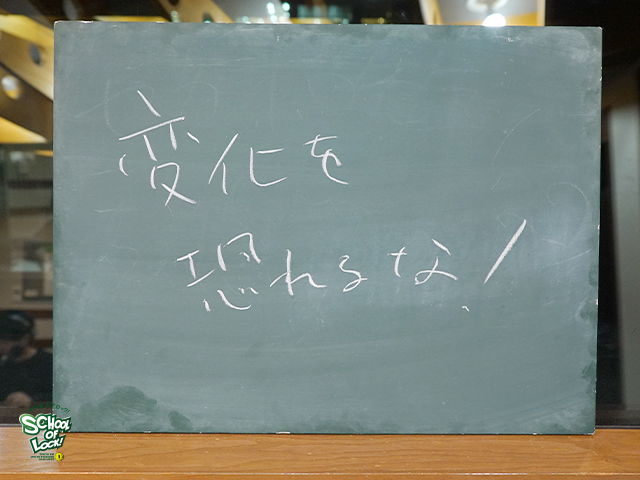 変化を
恐れるな!
SCHOOL
OF
LOCK!